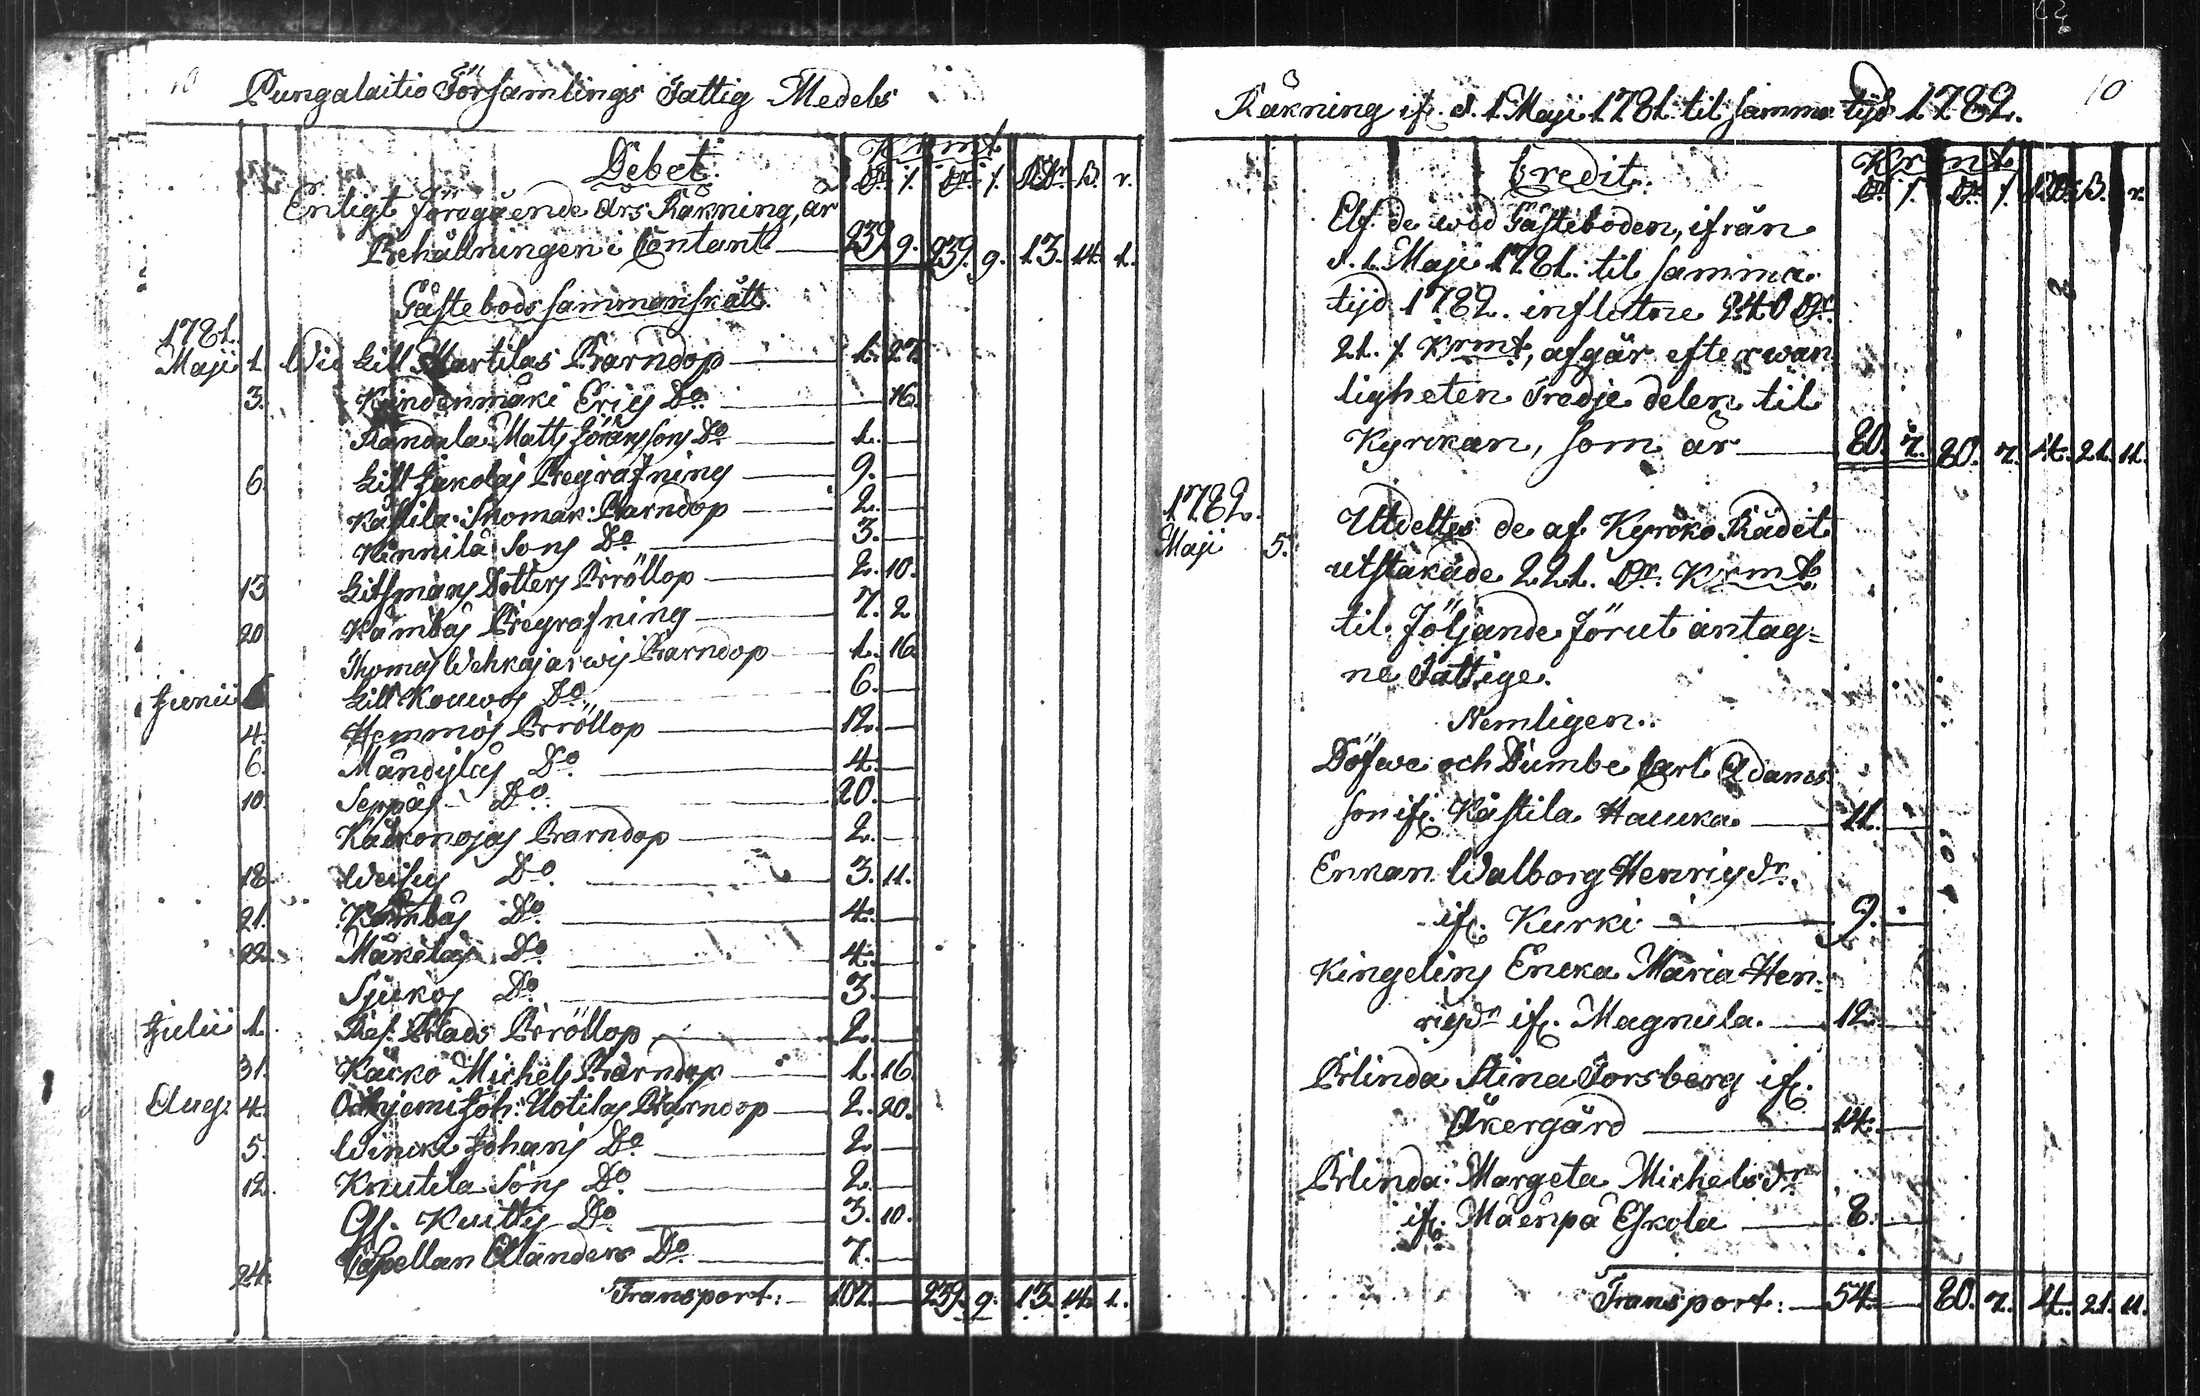 10
Pungalaitio Församlings Fattig Medels
Debet.
Krmt
Dr. /. Dr. /. RDr. S. r.
Enligt föregående Års Räkning, är
Behållningen i Contant 239 9. 239. 9. 13. 14. 1.
Gästebods sammanskått.
1781.
Maji 1. Wid Lill Martilas Barndop 1. 27.
3. Erics Do. 16.
Matts Göranssons Do 1.
6. Lill Jakolas Begrafning 9.
Kåstila Thomas: Barndop 2.
Kinnilä Sons Do 3.
13 Dotters Bröllop 2. 10.
20 Kambas Begrafning 7. 2
Thomas Wehkajarwis Barndop 1. 16
Junii Lill Kouwos Do. 6.
4. Hemmos Bröllop 12.
6. Mändyläs Do. 4.
10. Seppäs Do. 20.
Barndop 2.
18. Do. 3. 11.
21. Kambas Do 4.
22. Mäkeläs Do 4.
Sjukos Do 3.
Julii 1. Ref. Blads Bröllop 2.
31. Karko Michels Barndop 1. 16.
Aug. 4. Joh: Uotilas Barndop 2. 20.
5. Johans Do. 2.
12. Knutila Sons Do. 2.
Gf. Kuittis Do 3. 10.
24. Capellan Ölanders Do. 7.
Transport: 107. 239. 9. 13. 14. 1.
Räkning if. d. 1. Maji 1781. til samma tijd 1782.
10
Credit.
Krmt
Dr. /. Dr. /. RDr. S. r.
Af de wid Gästeboden, ifrån
d. 1. Maji 1781. til samma
tijd 1782. influtne 240 Dr.
21. /. Krmt, afgår efter wan
ligheten Tredje delen til
Kyrkan, som är 80. 7. 80. 7. 4. 21. 11.
1782.
Maji 5. Utdeltes de af Kyrko Rådet
utstakade 221. Dr. Krmt
til följande förut antag=
ne Fattige.
Nemligen.
Döfwe och Dumbe Carl Adams
son if. Kåstila Hauka 11.
Enkan Walborg Henricsdr.
if. Kurki 9.
Kingelins Encka Maria Hen-
ricsdr if. Magnula. 12.
Blinda Stina Forsberg if.
Åkergård 14.
Blinda Margeta Michelsdr
if. Mäenpä Eskola 8.
Transport: 54. 80. 7. 4. 21. 11.